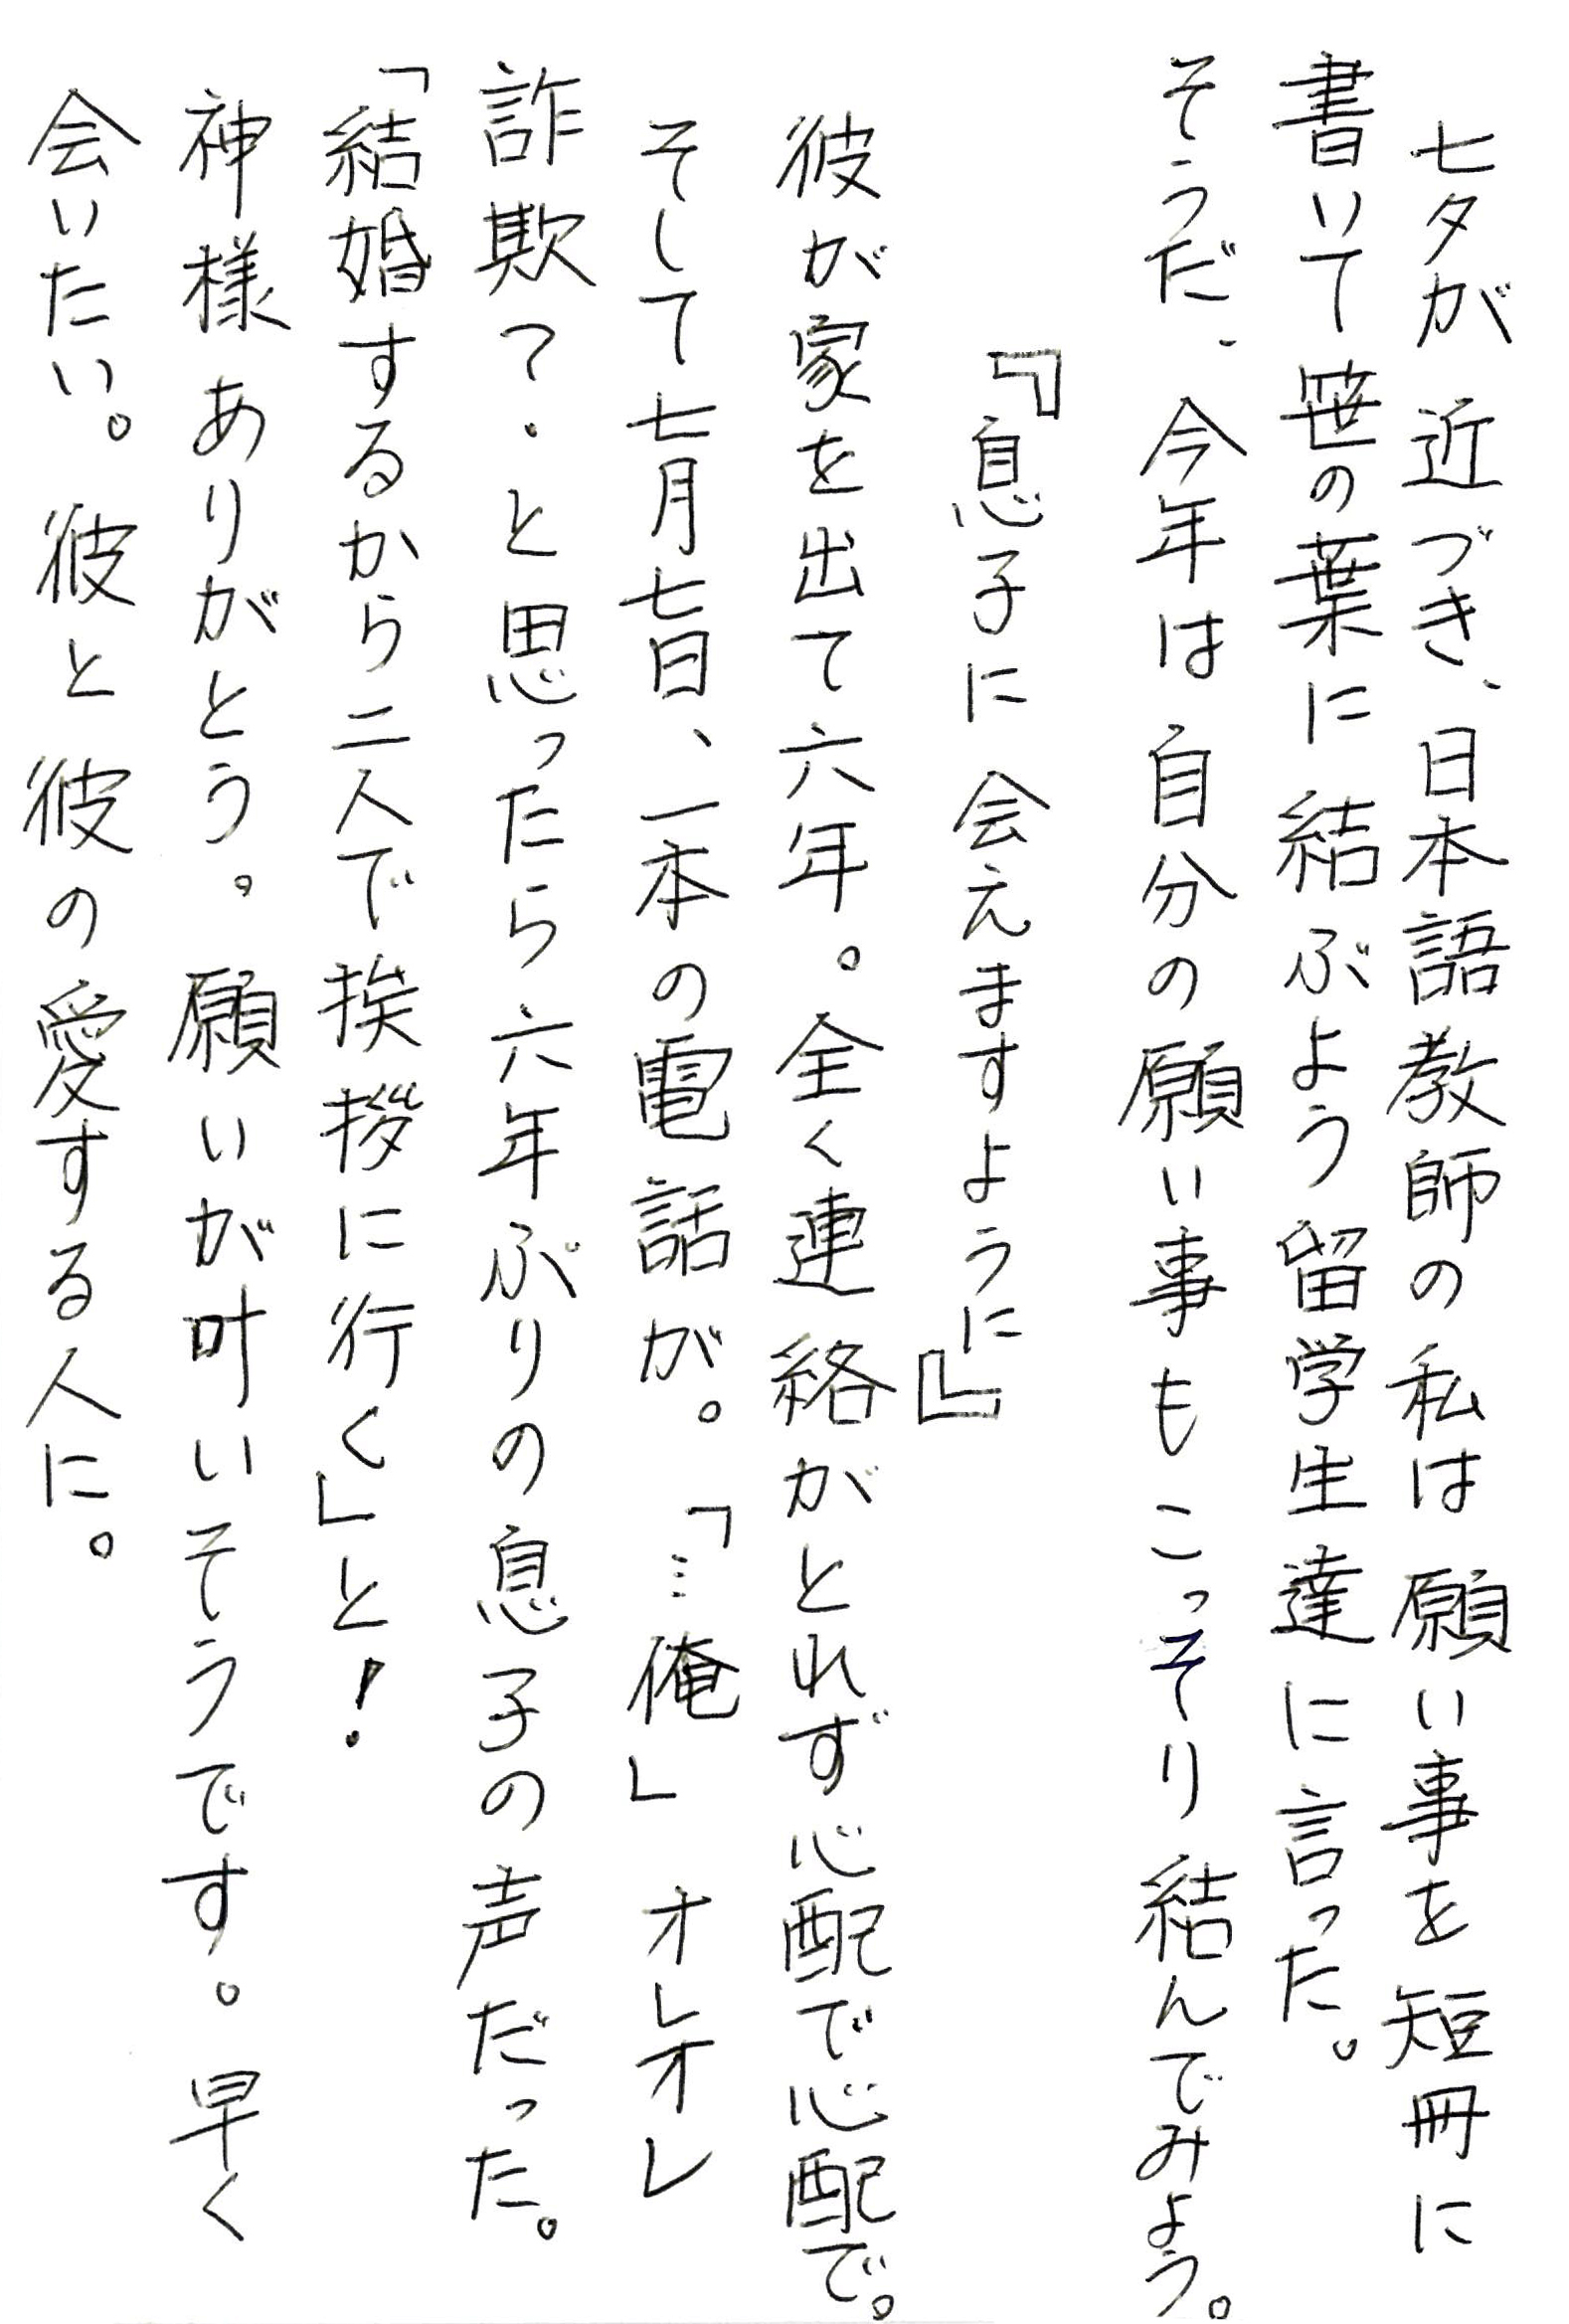 七夕が近づき、日本語教師の私は願い事を短冊に
書いて笹の葉に結ぶよう留学生達に言った。
そうだ、今年は自分の願い事もこっそり結んでみよう。
『息子に会えますように』
彼が家を出て六年。全く連絡がとれず心配で心配で。
そして七月七日、一本の電話が。「…俺」オレオレ
詐欺？と思ったら六年ぶりの息子の声だった。
「結婚するから二人で挨拶に行く」と！
神様ありがとう。願いが叶いそうです。早く
会いたい。彼と彼の愛する人に。